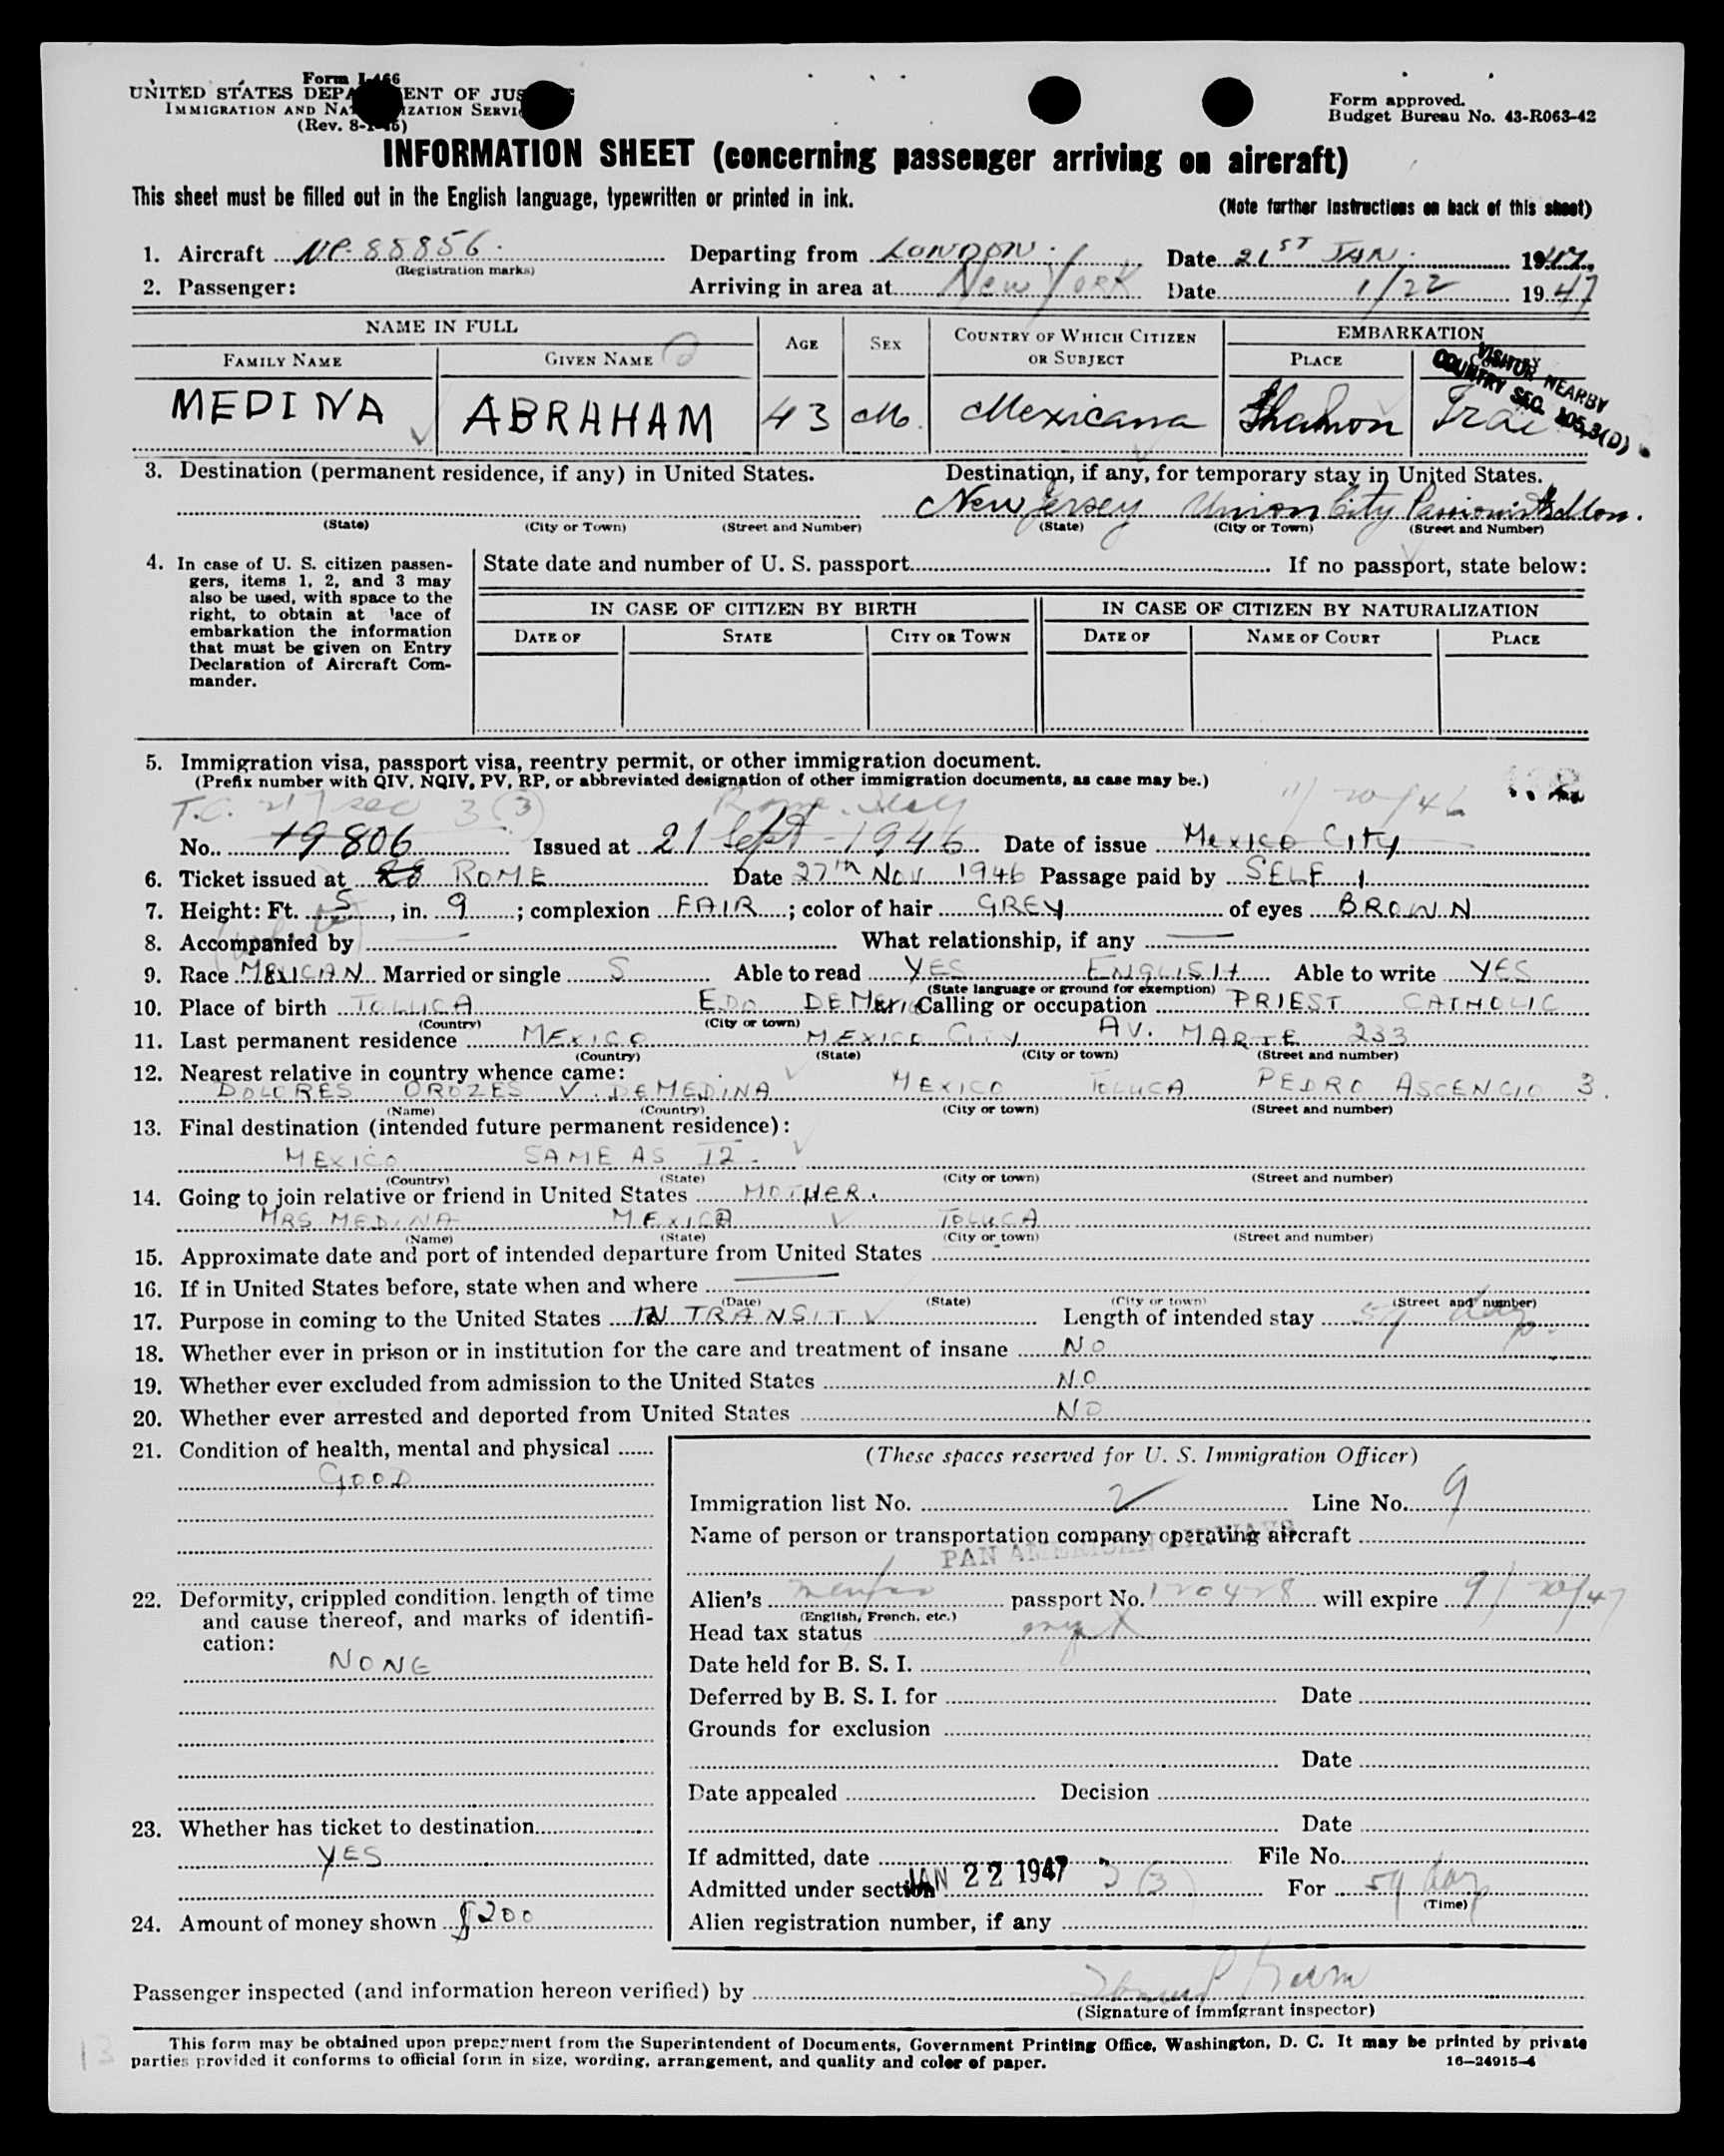 Form I-466
UNITED STATES DEPA ENT OF JUS
IMMIGRATION AND NA IZATION SERVI
(Rev. 8-1-45)
Form approved.
Budget Bureau No. 43-R063-42
INFORMATION SHEET (concerning passenger arriving on aircraft)
This sheet must be filled out in the English language, typewritten or printed in ink.
(Note further instructions on back of this sheet)
1. Aircraft 88856. Departing from LONDON. Date 21ST JAN. 1947.
(Registration marks)
2. Passenger: Arriving in area at New York Date 1/22 1947
NAME IN FULL AGE SEX COUNTRY OF WHICH CITIZEN OR SUBJECT EMBARKATION
FAMILY NAME GIVEN NAME PLACE COUNTRY
VISITOR NEARBY
COUNTRY SEC. 105.3(D)
MEDINA ABRAHAM 43 M. Mexicana
3. Destination (permanent residence, if any) in United States. Destination, if any, for temporary stay in United States.
New Jersey Union City
(State) (City or Town) (Street and Number) (State) (City or Town) (Street and Number)
4. In case of U. S. citizen passen-
gers, items 1, 2, and 3 may
also be used, with space to the
right, to obtain at lace of
embarkation the information
that must be given on Entry
Declaration of Aircraft Com-
mander.
State date and number of U. S. passport If no passport, state below:
IN CASE OF CITIZEN BY BIRTH IN CASE OF CITIZEN BY NATURALIZATION
DATE OF STATE CITY OR TOWN DATE OF NAME OF COURT PLACE
5. Immigration visa, passport visa, reentry permit, or other immigration document.
(Prefix number with QIV, NQIV, PV, RP, or abbreviated designation of other immigration documents, as case may be.)
T.C. 217 sec 3(3) Rome Italy 11/20/46
No. 19806 Issued at 21 Sept - 1946 Date of issue Mexico City
6. Ticket issued at ROME Date 27th NOV 1946 Passage paid by SELF
7. Height: Ft. 5, in. 9; complexion FAIR; color of hair GREY of eyes BROWN
8. Accompanied by — What relationship, if any —
9. Race MEXICAN Married or single S Able to read YES ENGLISH Able to write YES
(State language or ground for exemption)
10. Place of birth TOLUCA EDO DE MEXICO Calling or occupation PRIEST CATHOLIC
(Country) (City or town)
11. Last permanent residence MEXICO MEXICO CITY AV. MARTE 233
(Country) (State) (City or town) (Street and number)
12. Nearest relative in country whence came:
DOLORES OROZES V. DE MEDINA MEXICO TOLUCA PEDRO ASCENCIO 3.
(Name) (Country) (City or town) (Street and number)
13. Final destination (intended future permanent residence):
MEXICO SAME AS 12.
(Country) (State) (City or town) (Street and number)
14. Going to join relative or friend in United States MOTHER.
MRS MEDINA MEXICO TOLUCA
(Name) (State) (City or town) (Street and number)
15. Approximate date and port of intended departure from United States
16. If in United States before, state when and where —
(Date) (State) (City or town) (Street and number)
17. Purpose in coming to the United States IN TRANSIT Length of intended stay 59 days
18. Whether ever in prison or in institution for the care and treatment of insane NO
19. Whether ever excluded from admission to the United States NO
20. Whether ever arrested and deported from United States NO
21. Condition of health, mental and physical
GOOD
22. Deformity, crippled condition, length of time
and cause thereof, and marks of identifi-
cation:
NONE
23. Whether has ticket to destination
YES
24. Amount of money shown $200
(These spaces reserved for U. S. Immigration Officer)
Immigration list No. 2 Line No. 9
Name of person or transportation company operating aircraft
PAN AMERICAN AIRWAYS
Alien's passport No. 120428 will expire 9/20/47
(English, French, etc.)
Head tax status
Date held for B. S. I.
Deferred by B. S. I. for Date
Grounds for exclusion
Date
Date appealed Decision
Date
If admitted, date JAN 22 1947 File No.
Admitted under section 3(3) For 59 days
(Time)
Alien registration number, if any
Passenger inspected (and information hereon verified) by
(Signature of immigrant inspector)
This form may be obtained upon prepayment from the Superintendent of Documents, Government Printing Office, Washington, D. C. It may be printed by private
parties provided it conforms to official form in size, wording, arrangement, and quality and color of paper. 16—24915-4
13